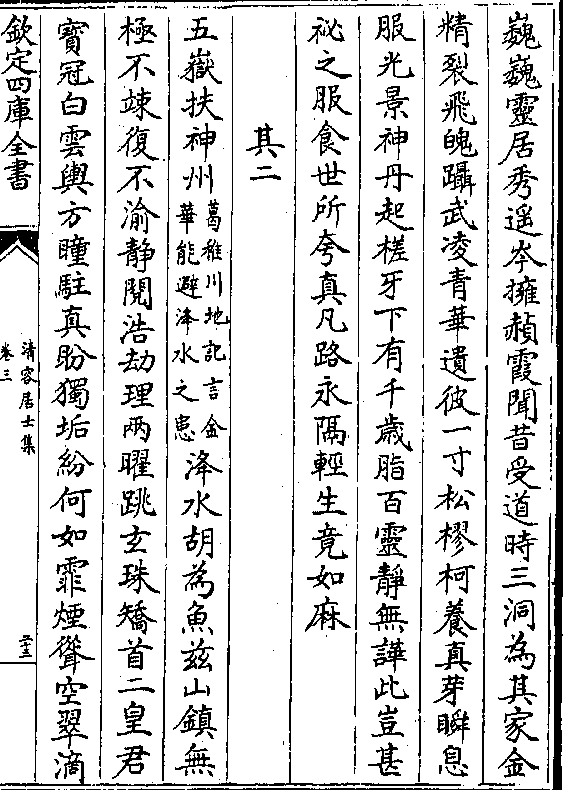 巍巍靈居秀遥岑擁赬霞聞昔受道時三洞為其家金
精裂飛魄躡武凌青華遺彼一寸松樛柯養真芽瞬息
服光景神丹起槎牙下有千歲脂百靈靜無譁此豈甚
祕之服食世所夸真凡路永隔輕生竟如麻
其二
五嶽扶神州葛稚川地記言金華能避洚水之患洚水胡為魚兹山鎮無
極不竦復不渝靜閱浩劫理兩曜跳玄珠矯首二皇君
寶冠白雲輿方瞳駐真盼獨垢紛何如霏煙聳空翠滴
欽定四庫全書
清容居士集
卷三
二十三